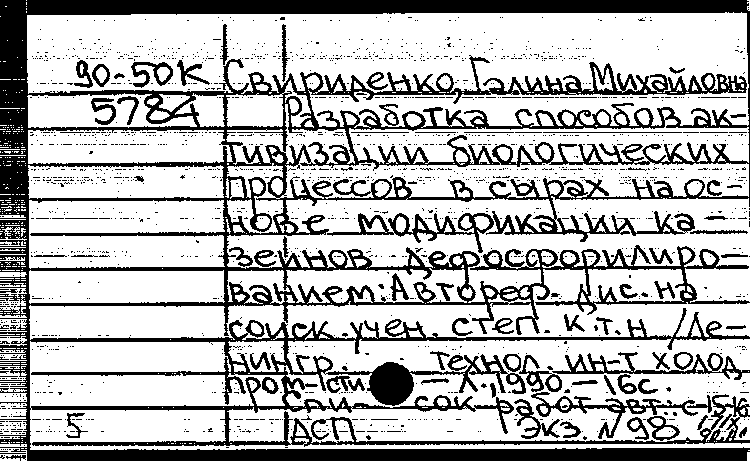 90-50К Свириденко, Галина Михайловна
5784 Разработка способов ак-
тивизации биологических
процессов в сырах на ос-
нове модификации ка-
зеинов дефосфорилиро-
ванием: Автореф. дис. на
соиск. учен. степ. к.т.н /Ле-
нингр. технол. ин-т холод.
пром-сти. — Л., 1990. — 16с.
Спи- сок работ авт.: с 15-16
5 ДСП. Экз. N 98